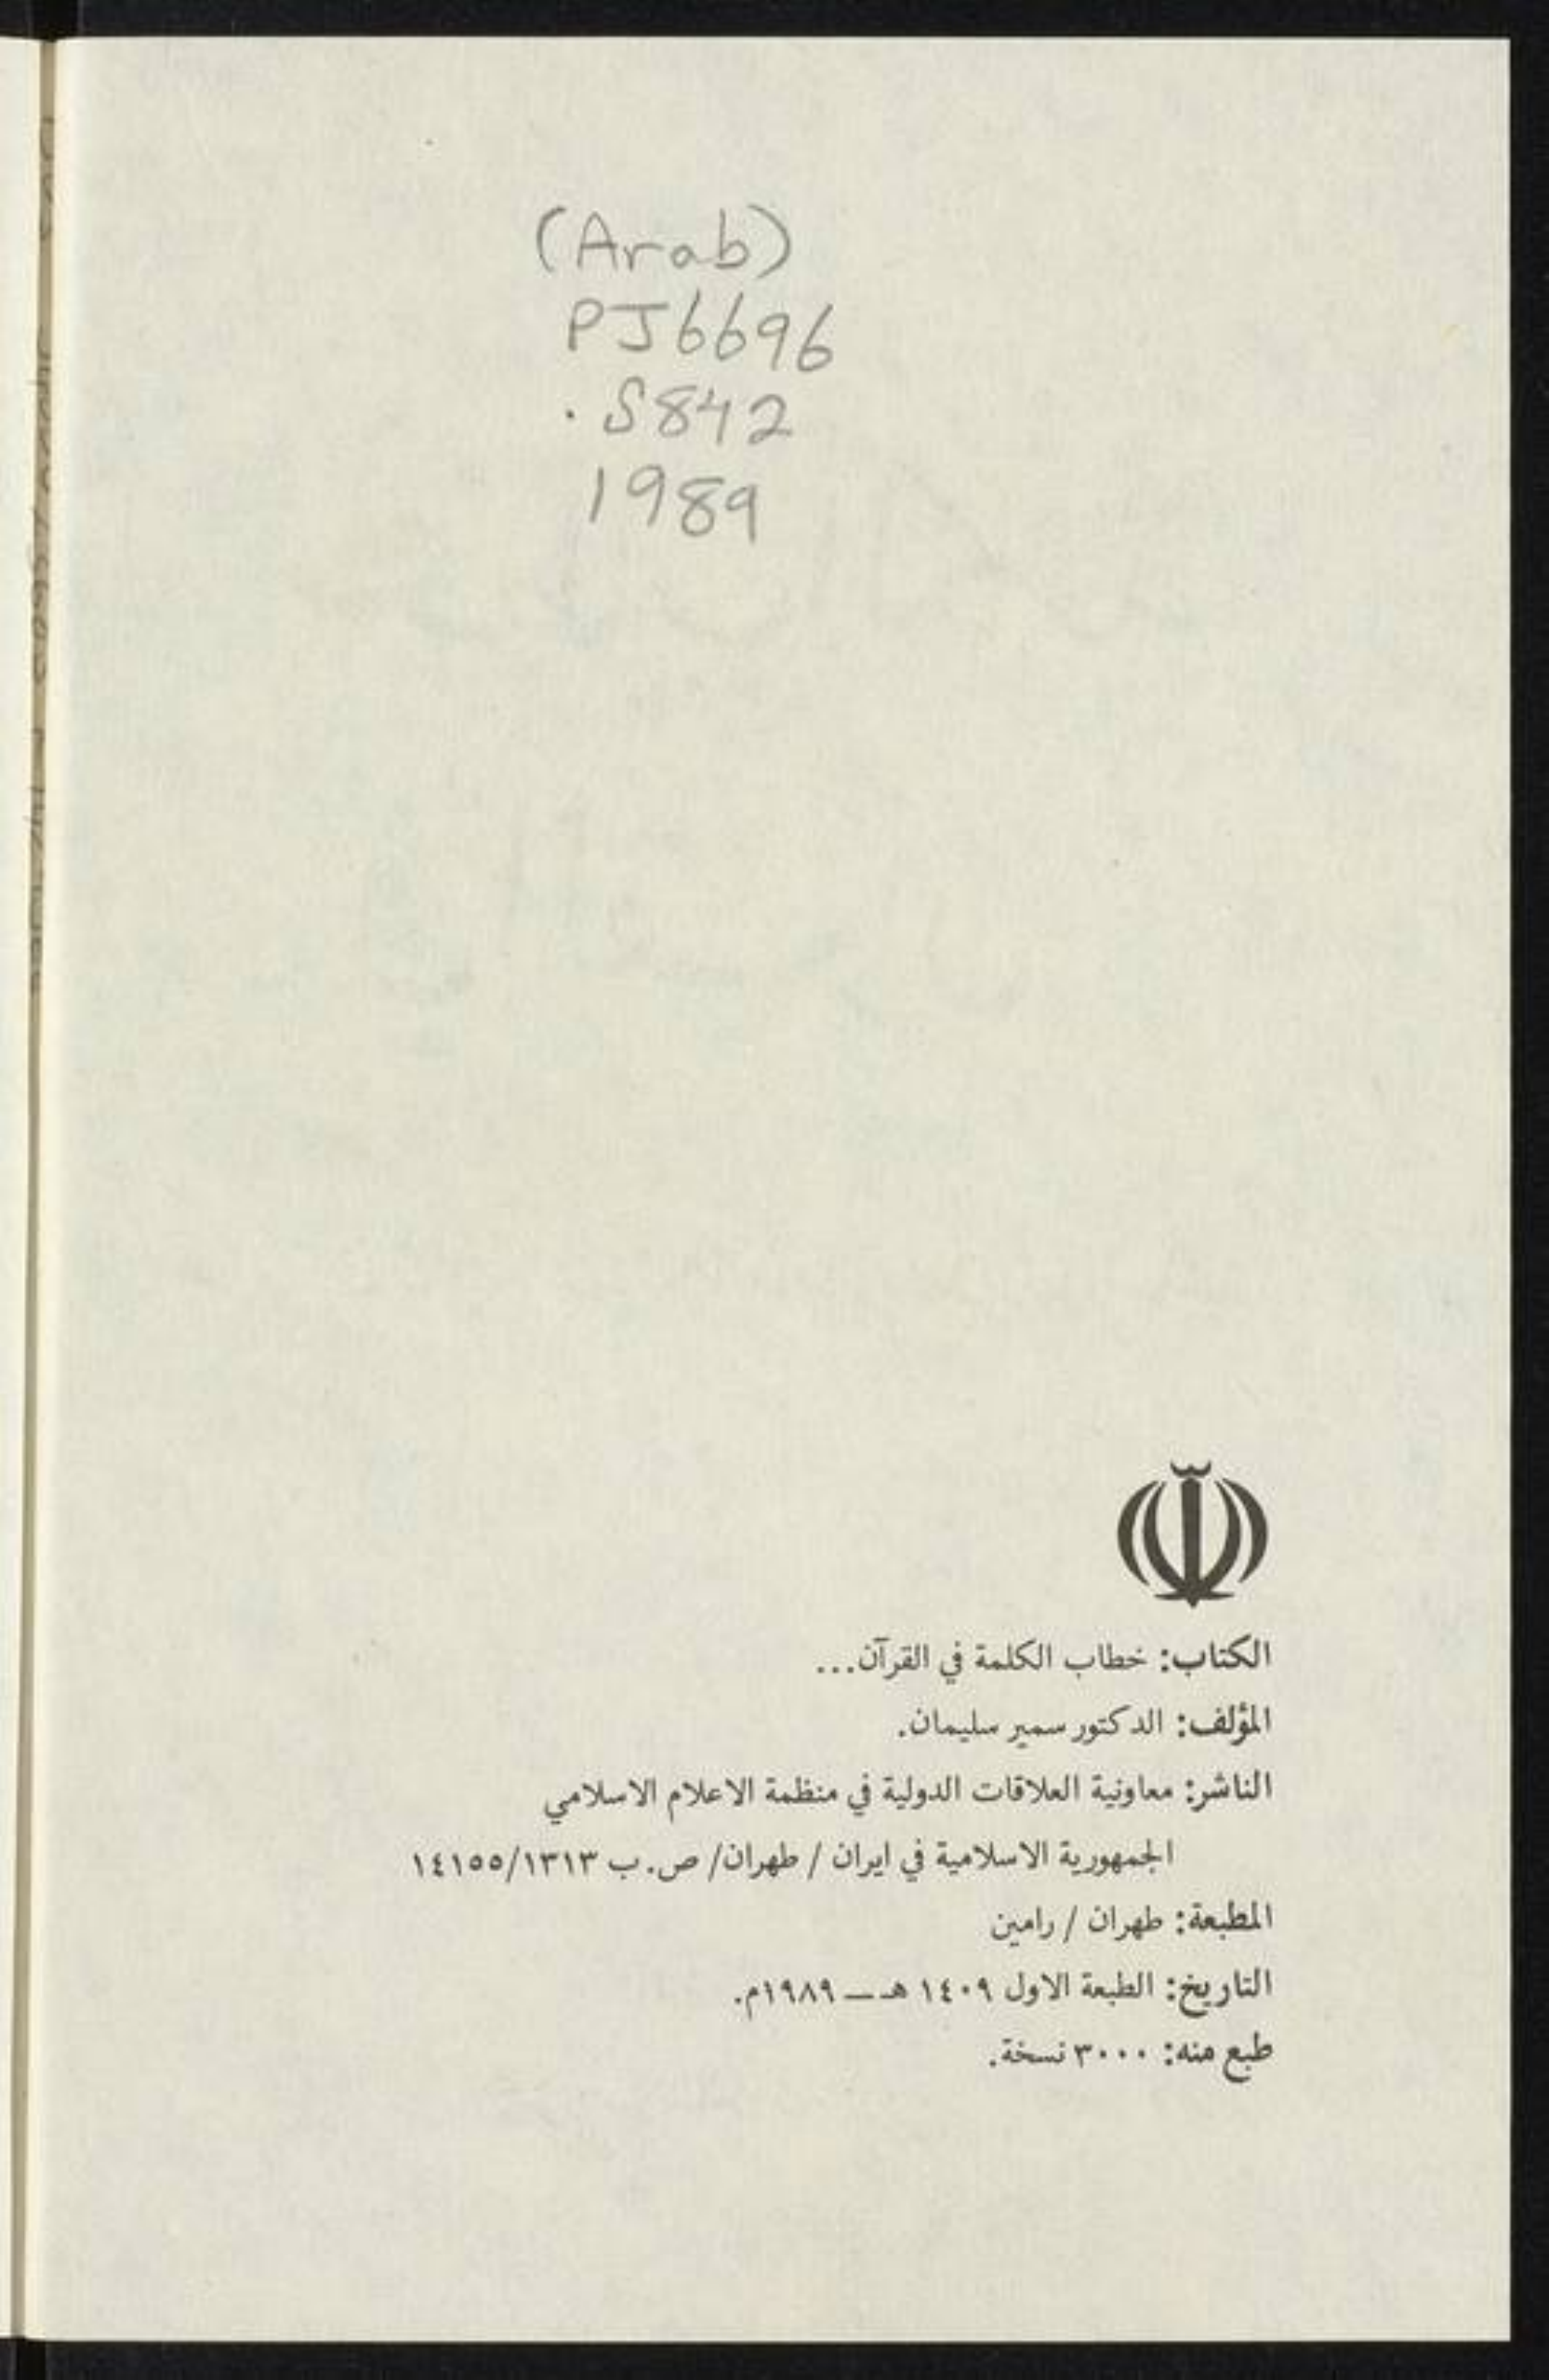 (Arab)
PJ6696
.S842
1989
الكتاب: خطاب الكلمة في القرآن...
المؤلف: الدكتور سمير سليمان.
الناشر: معاونية العلاقات الدولية في منظمة الاعلام الاسلامي
الجمهورية الاسلامية في ايران / طهران/ ص.ب ١٤١٥٥/١٣١٣
المطبعة: طهران / رامين
التاريخ: الطبعة الاول ١٤٠٩ هـ ــ ١٩٨٩م.
طبع منه: ٣٠٠٠ نسخة.